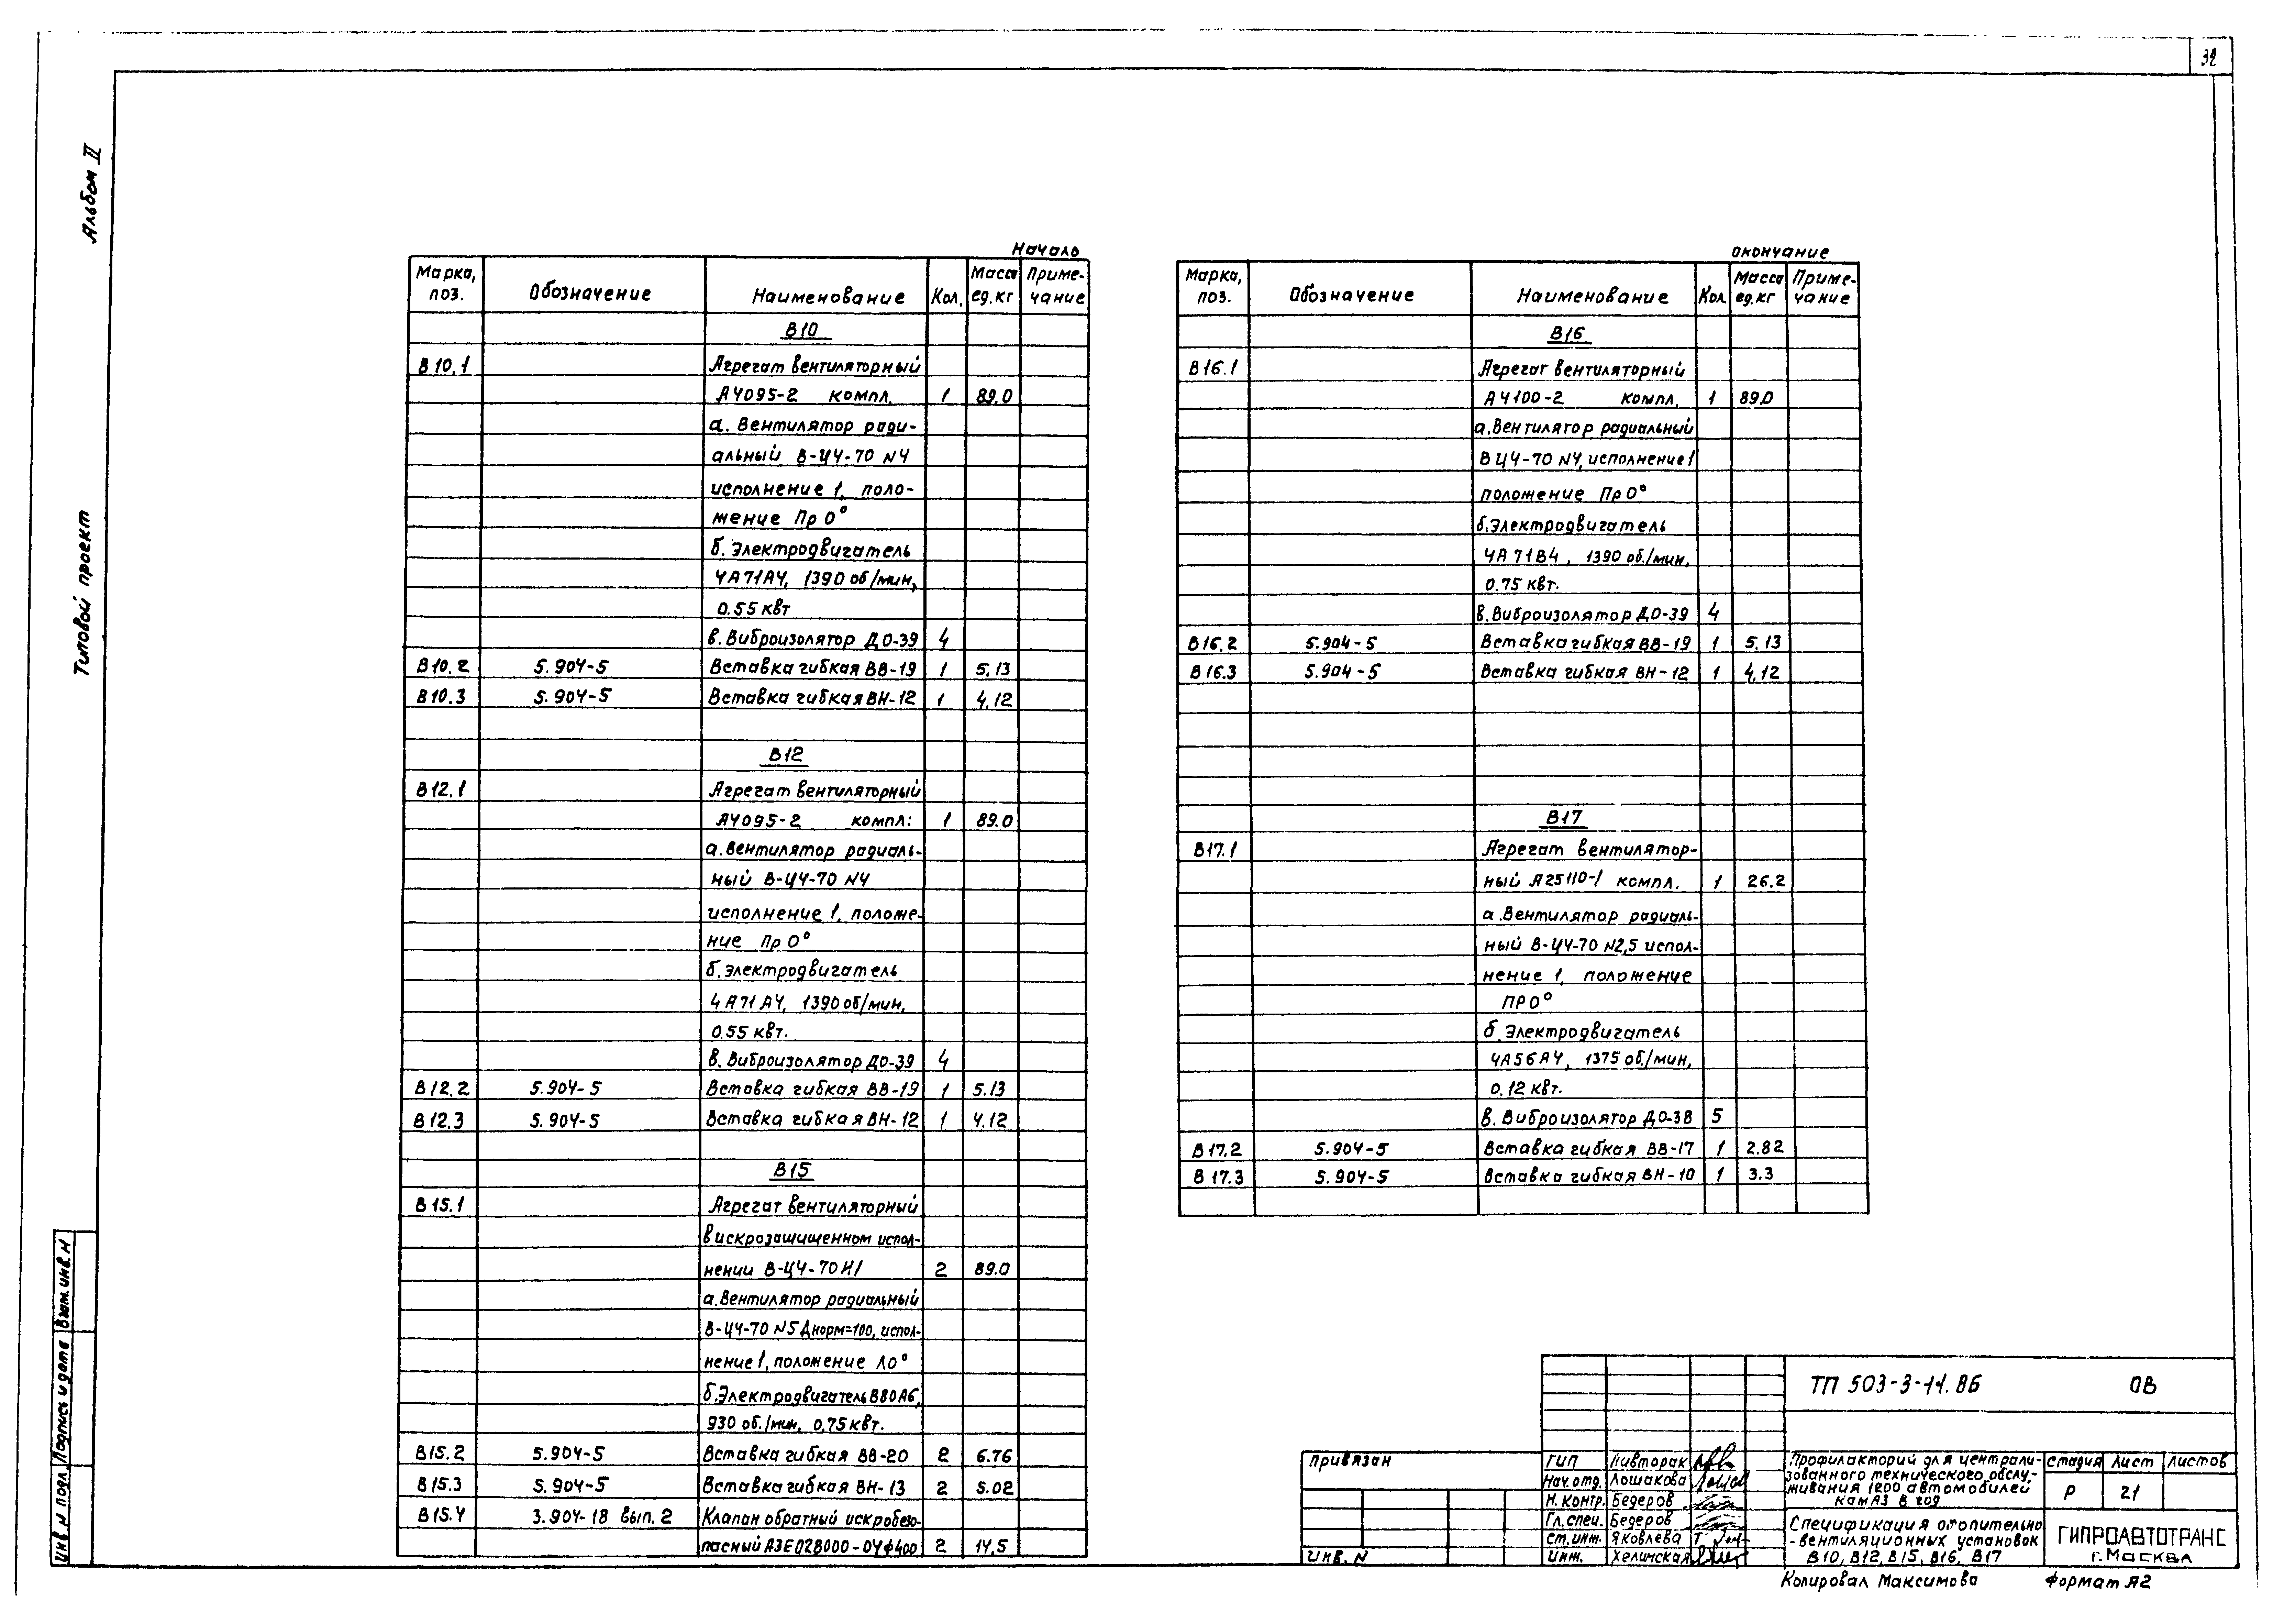 32
Альбом II
Типовой проект
Начало
Марка, поз. Обозначение Наименование Кол. Масса ед. кг Примечание
В10
В10.1 Агрегат вентиляторный
А4095-2 компл. 1 89.0
а. Вентилятор ради-
альный В-Ц4-70 N4
исполнение 1, поло-
жение Пр 0°
б. Электродвигатель
4А71А4, 1390 об/мин,
0.55 квт
в. Виброизолятор ДО-39 4
В10.2 5.904-5 Вставка гибкая ВВ-19 1 5,13
В10.3 5.904-5 Вставка гибкая ВН-12 1 4,12
В12
В12.1 Агрегат вентиляторный
А4095-2 компл: 1 89.0
а. Вентилятор радиаль-
ный В-Ц4-70 N4
исполнение 1, положе-
ние Пр 0°
б. Электродвигатель
4А71А4, 1390 об/мин,
0.55 квт.
в. Виброизолятор ДО-39 4
В12.2 5.904-5 Вставка гибкая ВВ-19 1 5.13
В12.3 5.904-5 Вставка гибкая ВН-12 1 4.12
В15
В15.1 Агрегат вентиляторный
в искрозащищенном испол-
нении В-Ц4-70И1 2 89.0
а. Вентилятор радиальный
В-Ц4-70 N5 Днорм=100, испол-
нение 1, положение Л0°
б. Электродвигатель В80А6,
930 об./мин, 0,75 квт.
В15.2 5.904-5 Вставка гибкая ВВ-20 2 6.76
В15.3 5.904-5 Вставка гибкая ВН-13 2 5.02
В15.4 3.904-18 вып. 2 Клапан обратный искробезо-
пасный АЗЕ028000-04ф400 2 14,5
окончание
Марка, поз. Обозначение Наименование Кол Масса ед. кг Примечание
В16
В16.1 Агрегат вентиляторный
А4100-2 компл. 1 89.0
а. Вентилятор радиальный
В Ц4-70 N4, исполнение 1
положение Пр 0°
б. Электродвигатель
4А71В4, 1390 об./мин,
0.75 квт.
в. Виброизолятор ДО-39 4
В16.2 5.904-5 Вставка гибкая ВВ-19 1 5,13
В16.3 5.904-5 Вставка гибкая ВН-12 1 4,12
В17
В17.1 Агрегат вентилятор-
ный А25110-1 компл. 1 26.2
а. Вентилятор радиаль-
ный В-Ц4-70 N2,5 испол-
нение 1, положение
ПР0°
б. Электродвигатель
4А56А4, 1375 об./мин,
0.12 квт.
в. Виброизолятор ДО-38 5
В17.2 5.904-5 Вставка гибкая ВВ-17 1 2.82
В17.3 5.904-5 Вставка гибкая ВН-10 1 3.3
Взам. инв. N
Подпись и дата
Инв. N подл.
Привязан
Инв. N
ГИП Пивторак
Нач. отд. Лошакова
Н. контр. Бедеров
Гл. спец. Бедеров
Ст. инж. Яковлева
Инж. Хелинская
ТП 503-3-11.86 ОВ
Профилакторий для централи-
зованного технического обслу-
живания 1200 автомобилей
КамАЗ в год
Стадия Лист Листов
Р 21
Спецификация отопительно
-вентиляционных установок
В10, В12, В15, В16, В17
ГИПРОАВТОТРАНС
г. Москва
Копировал Максимова Формат А2